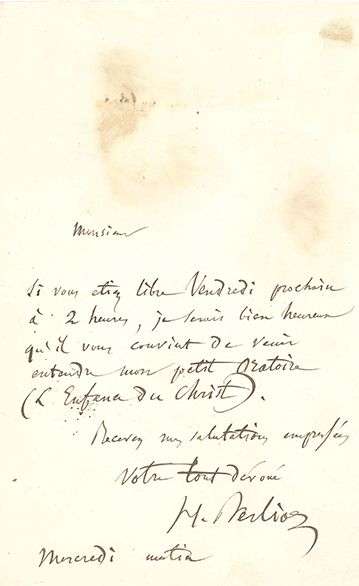 Monsieur
Si vous etiez libre Vendredi prochain
à 2 heures, je serais bien heureux
qu'il vous convint de venir
entendre mon petit Oratoire
(L'Enfance du Christ).
Recevez mes salutations empressées
Votre tout dévoué
H. Berlioz
Mercredi matin